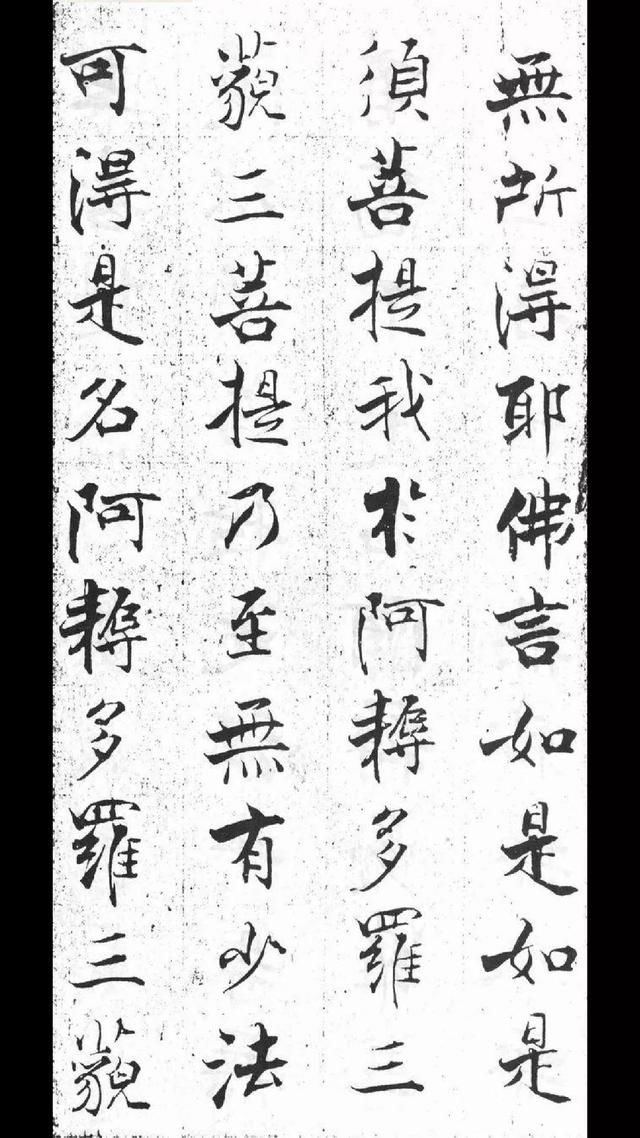 無所得耶佛言如是如是
須菩提我於阿耨多羅三
藐三菩提乃至無有少法
可得是名阿耨多羅三藐